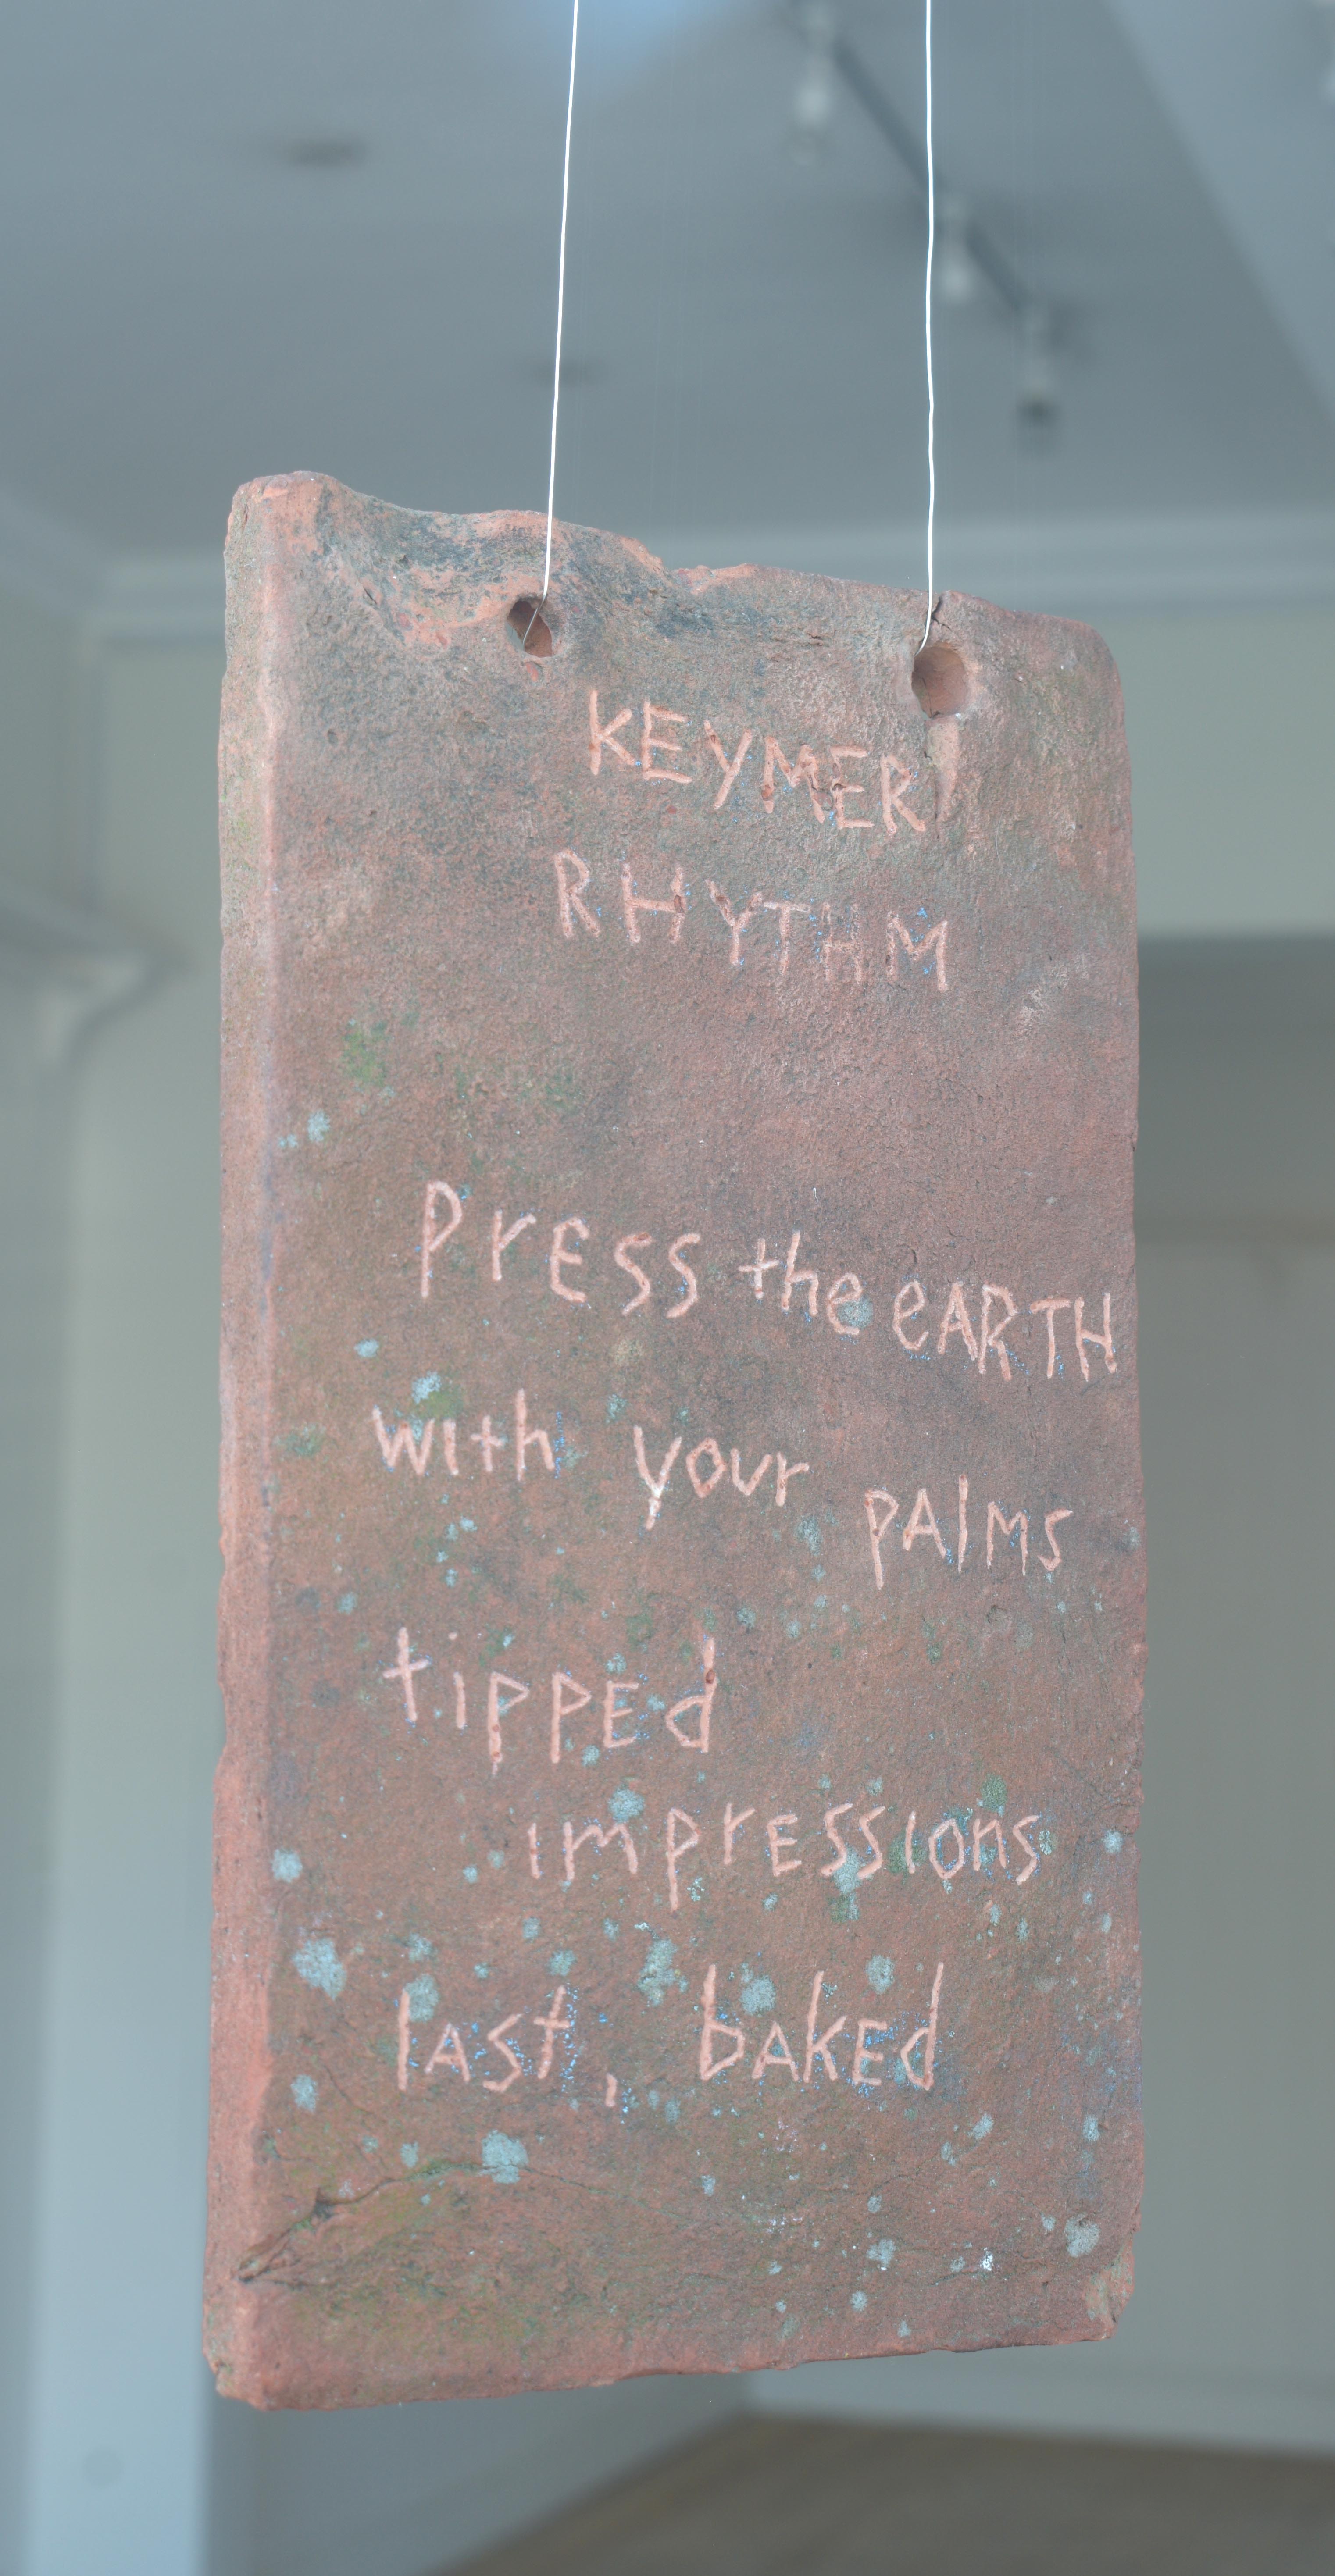 KEYMER
RHYTHM
PrESS the eARTH
with your pAlms
tippEd
imprEssions
lAst, bAkEd